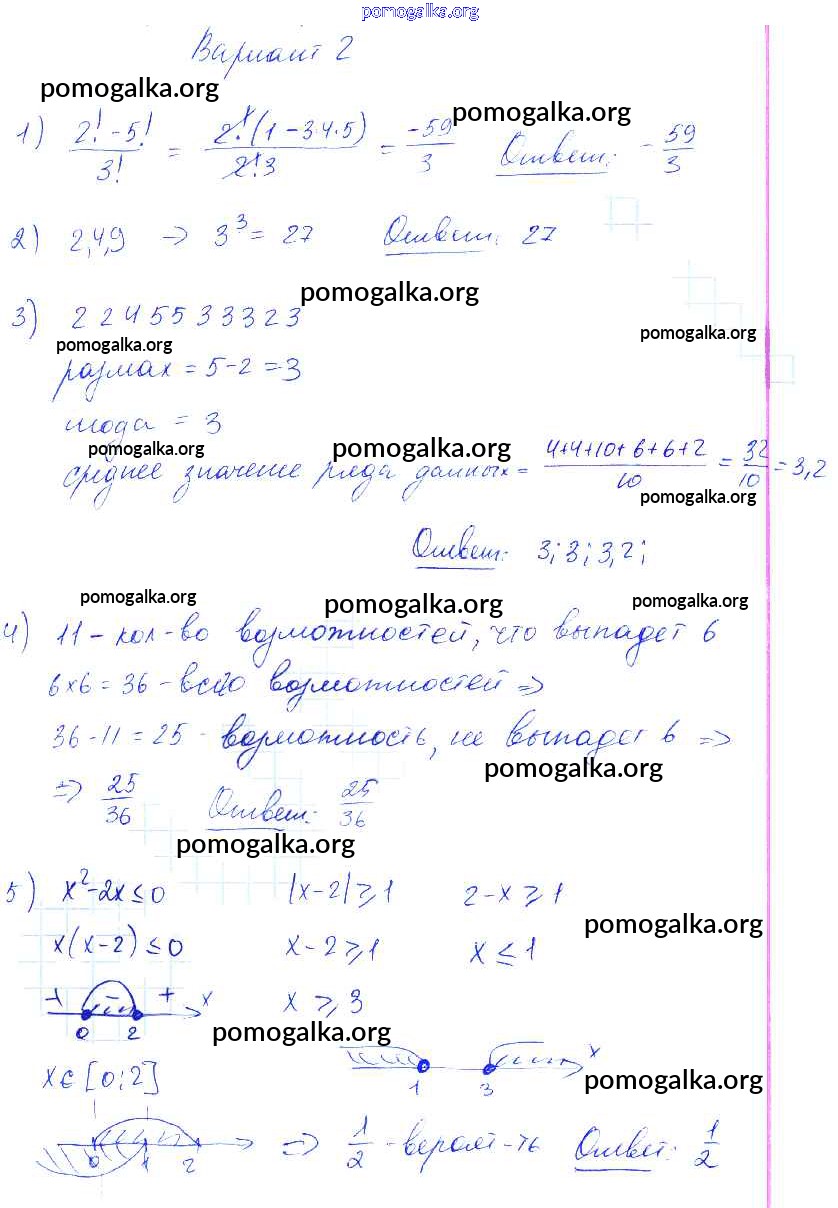 pomogalka.org
Вариант 2
pomogalka.org
pomogalka.org
1) (2! - 5!)/3! = 2!(1 - 3·4·5)/(2!·3) = -59/3 Ответ: -59/3
2) 2,4,9 → 3³ = 27 Ответ: 27
pomogalka.org
3) 2 2 4 5 5 3 3 3 2 3
pomogalka.org
pomogalka.org
размах = 5-2 = 3
мода = 3
pomogalka.org
pomogalka.org
среднее значение ряда данных = (4+4+10+6+6+2)/10 = 32/10 = 3,2
pomogalka.org
Ответ: 3; 3; 3,2;
pomogalka.org
pomogalka.org
pomogalka.org
4) 11 - кол-во возможностей, что выпадет 6
6×6 = 36 - всего возможностей ⇒
36 - 11 = 25 - возможность, не выпадет 6 ⇒
pomogalka.org
⇒ 25/36 Ответ: 25/36
pomogalka.org
5) x²-2x ≤ 0 |x-2| ≥ 1 2-x ≥ 1
pomogalka.org
x(x-2) ≤ 0 x-2 ≥ 1 x ≤ 1
+ - + x x ≥ 3
0 2
pomogalka.org
x
x ∈ [0;2] 1 3
pomogalka.org
0 1 2 ⇒ 1/2 - вероят-ть Ответ: 1/2